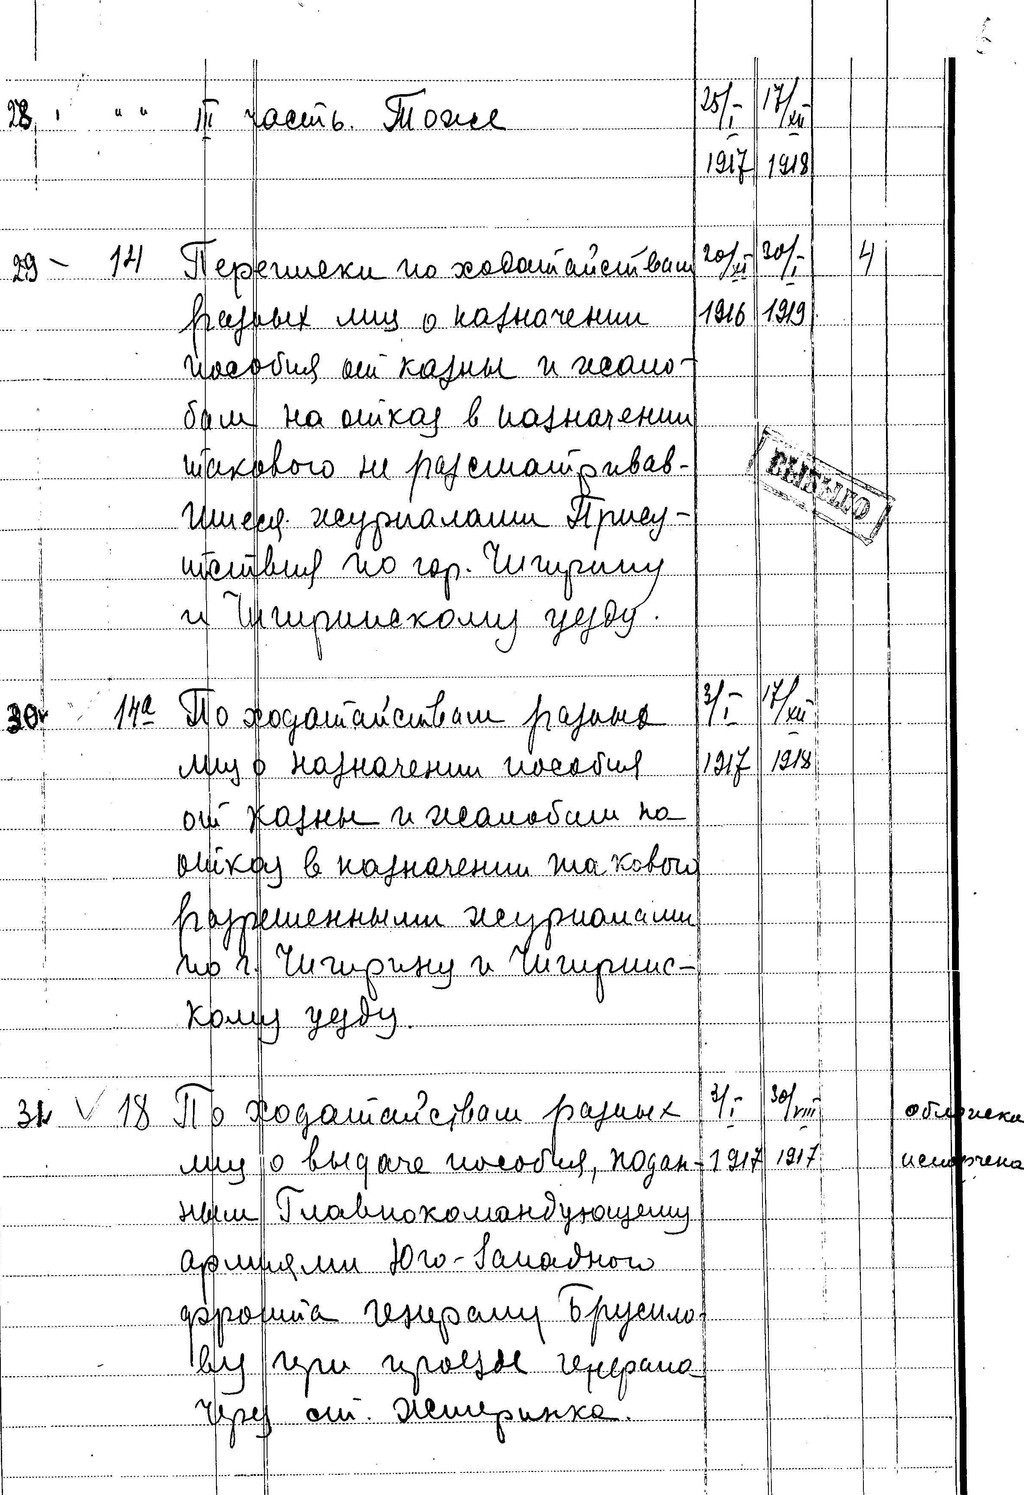 28 " " III часть. Тоже 25/I 17/XII
1917 1918
29 – 14 Переписки по ходатайствам 20/XI 30/I 4
разных лиц о назначении 1916 1919
пособия от казны и жало-
бам на отказ в назначении
такового не рассматривав-
шиеся журналами Прису-
тствия по гор. Чигирину
и Чигиринскому уезду.
ВЫБЫЛО
30 14а По ходатайствам разных 3/I 17/XII
лиц о назначении пособия 1917 1918
от казны и жалобам на
отказ в назначении такового
разрешенными журналами
по г. Чигирину и Чигиринс-
кому уезду.
31 V 18 По ходатайствам разных 3/I 30/VIII обл описка
лиц о выдаче пособия, подан- 1917 1917 исправлена
ным Главнокомандующему
армиями Юго-Западного
фронта генералу Брусило-
ву при проезде генерала
через ст. Жмеринка.